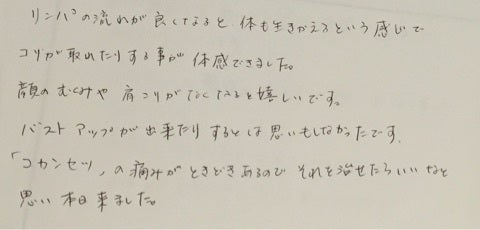 リンパの流れが良くなると、体も生きかえるという感じで
コリが取れたりする事が体感できました。
顔のむくみや肩こりがなくなると嬉しいです。
バストアップが出来たりするとは思いもしなかったです。
「コカンセツ」の痛みがときどきあるので それを治せたらいいなと
思い 本日来ました。